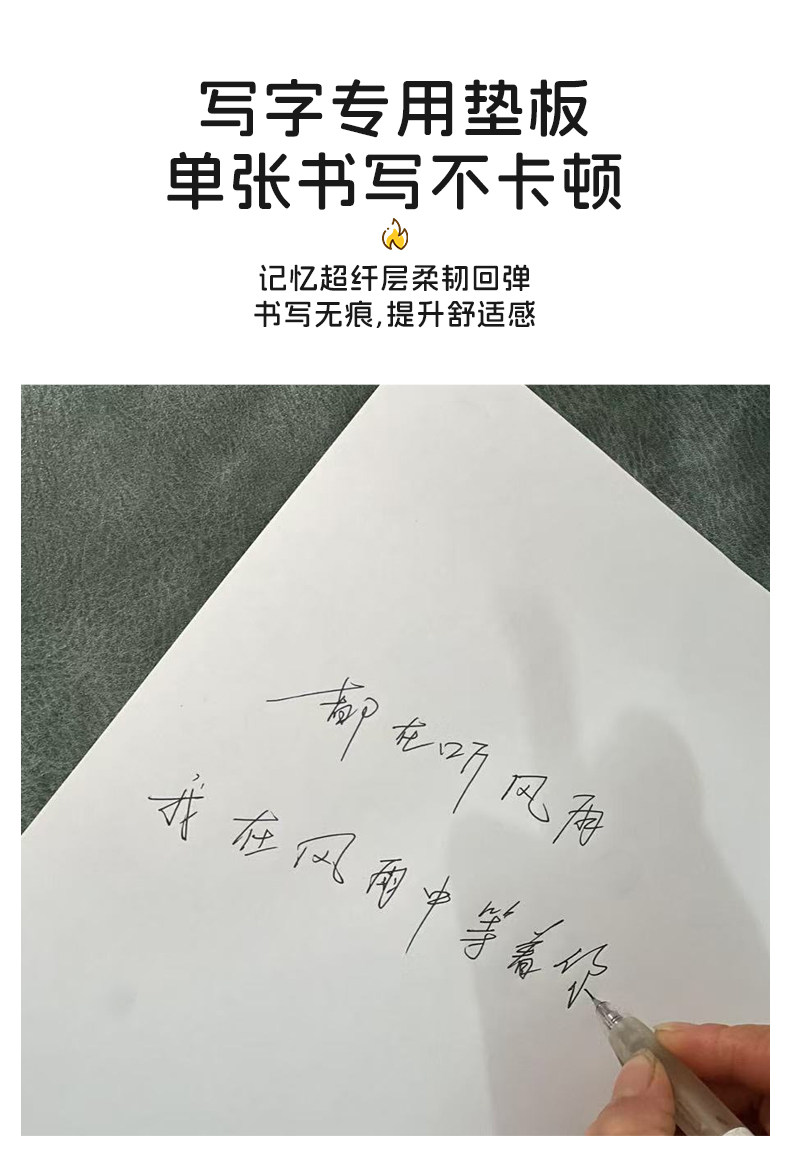 写字专用垫板
单张书写不卡顿
记忆超纤层柔韧回弹
书写无痕,提升舒适感
都在听风雨
我在风雨中等着你